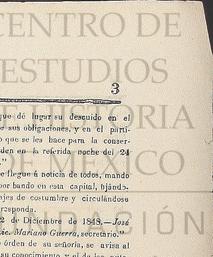 CENTRO DE
ESTUDIOS
3
que dé lugar su descuido en el
de sus obligaciones, y en el parti-
o que se les hace para la conser-
den en la referida noche del 24
."
e llegue á noticia de todos, mando
por bando en esta capital, fijándo-
ajes de costumbre y circulándose
rresponda.
2 de Diciembre de 1849.—José
Lic. Mariano Guerra, secretario."
e órden de su señoría, se avisa al
DE MÉXICO